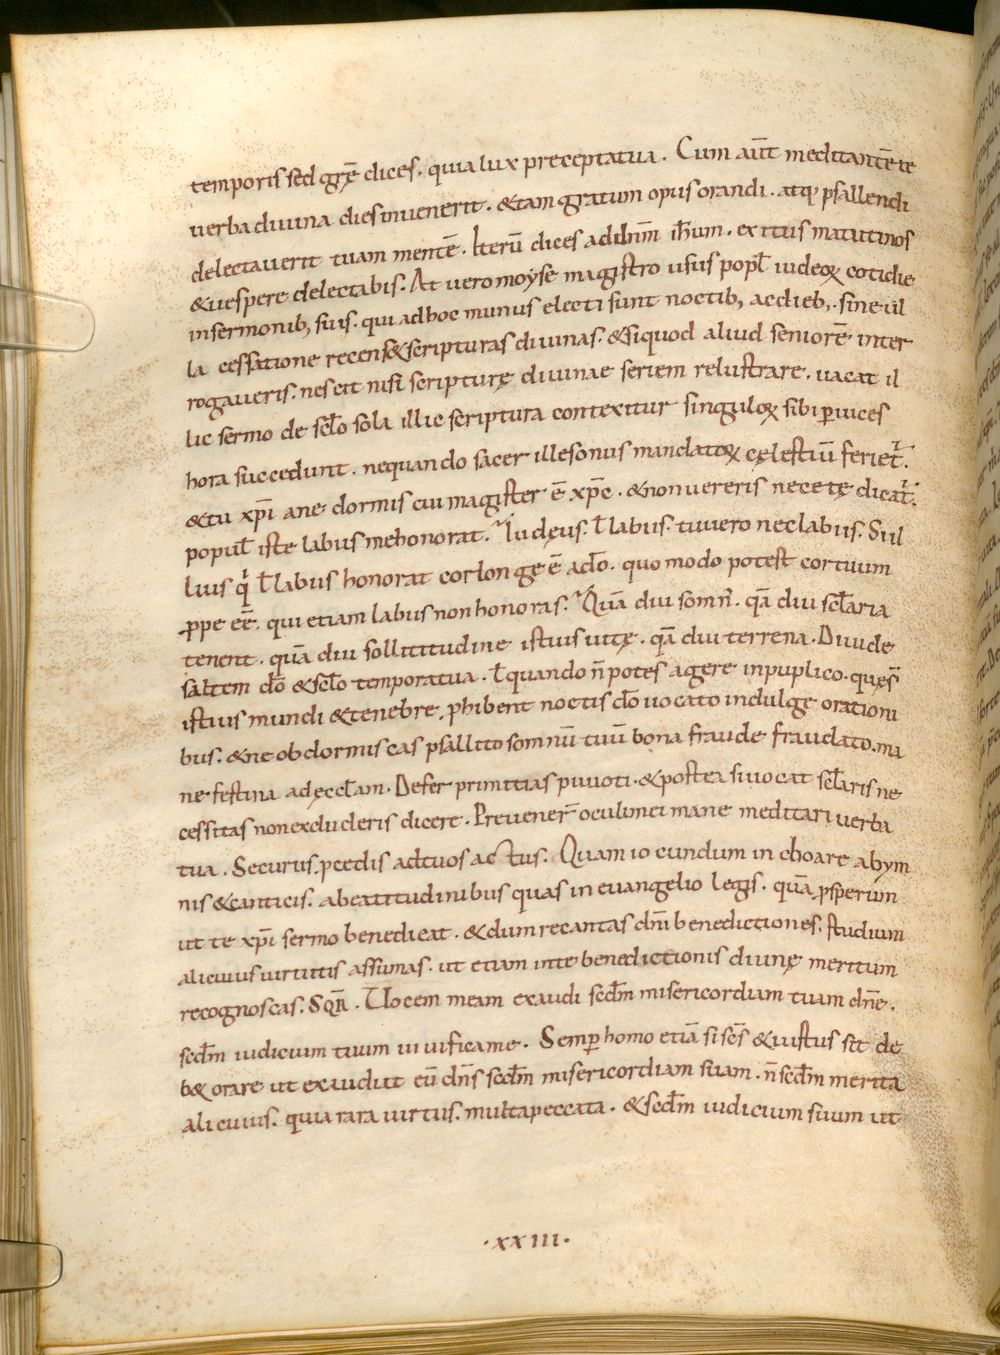 temporis sed grę̄ dices. quia lux precepta tua. Cum aut̄ meditantē te
uerba diuina dies inuenerit. & tam gratum opus orandi. atq; psallendi
delectauerit tuam mentē. Iterū dices ad dn̄m ih̄um. exitus matutinos
& uespere delectabis. At uero moyse magistro usus popl̄ iudeoꝝ cotidie
in sermonib; suis. qui ad hoc munus electi sunt noctib; ac dieb; sine ul
la cessatione recens& scripturas diuinas. & si quod aliud seniorē inter
rogaueris. nescit nisi scripturę diuinae seriem relustrare. uacat il
lic sermo de scl̄o sola illic scriptura contexitur singuloꝝ sibi ꝑ uices
hora succedunt. nequando sacer ille sonus mandatoꝝ cęlestiū feriet᷑.
& tu xp̄iane dormis cui magister ē xp̄c. & non uereris ne ce te dicat᷑.
popul̄ iste labiis me honorat. Iudęus. l̄ labiis. tu uero nec labiis. Si il
lius q̄ l̄ labiis honorat cor longe ē a dō. quomodo potest cor tuum
ꝓpe eē. qui etiam labiis non honoras. Quā diu somn̄. qā diu scl̄aria
tenent. quā diu sollititudine istius uitę. qā diu terrena. Diuide
saltem dō & scl̄o tempora tua. l̄ quando n̄ potes agere in puplico. quęs̄
istius mundi & tenebrę ꝓhibent noctis dō uocato indulge orationi
bus. & ne obdormiscas psallito somnū tuū bona fraude fraudato. ma
ne festina ad ęccl̄am. Defer primitias pii uoti. & postea si uocat scl̄aris ne
cessitas non excluderis dicere. Preuener̄ oculi mei mane meditari uerba
tua. Securus ꝓcedis ad tuos actus. Quam iocundum inchoare abym
nis & canticis. a beatitudinibus quas in euangelio legis. quā ꝓsperum
ut te xp̄i sermo benedicat. & dum recantas dn̄i benedictiones. studium
alicuius uirtutis assumas. ut etiam in te benedictionis diuinę meritum
recognoscas. SQR̄. Uocem meam exaudi scd̄m misericordiam tuam dn̄e.
scd̄m iudicium tuum uiuifica me. Semꝑ homo etiā si sc̄s & iustus sit de
b& orare ut exaudiat eū dn̄s scd̄m misericordiam suam. n̄ scd̄m merita
alicuius. quia rara uirtus. multa peccata. & scd̄m iudicium suum ut
.xxiii.